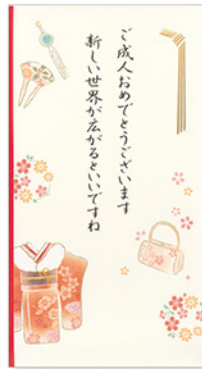 ご成人おめでとうございます
新しい世界が広がるといいですね